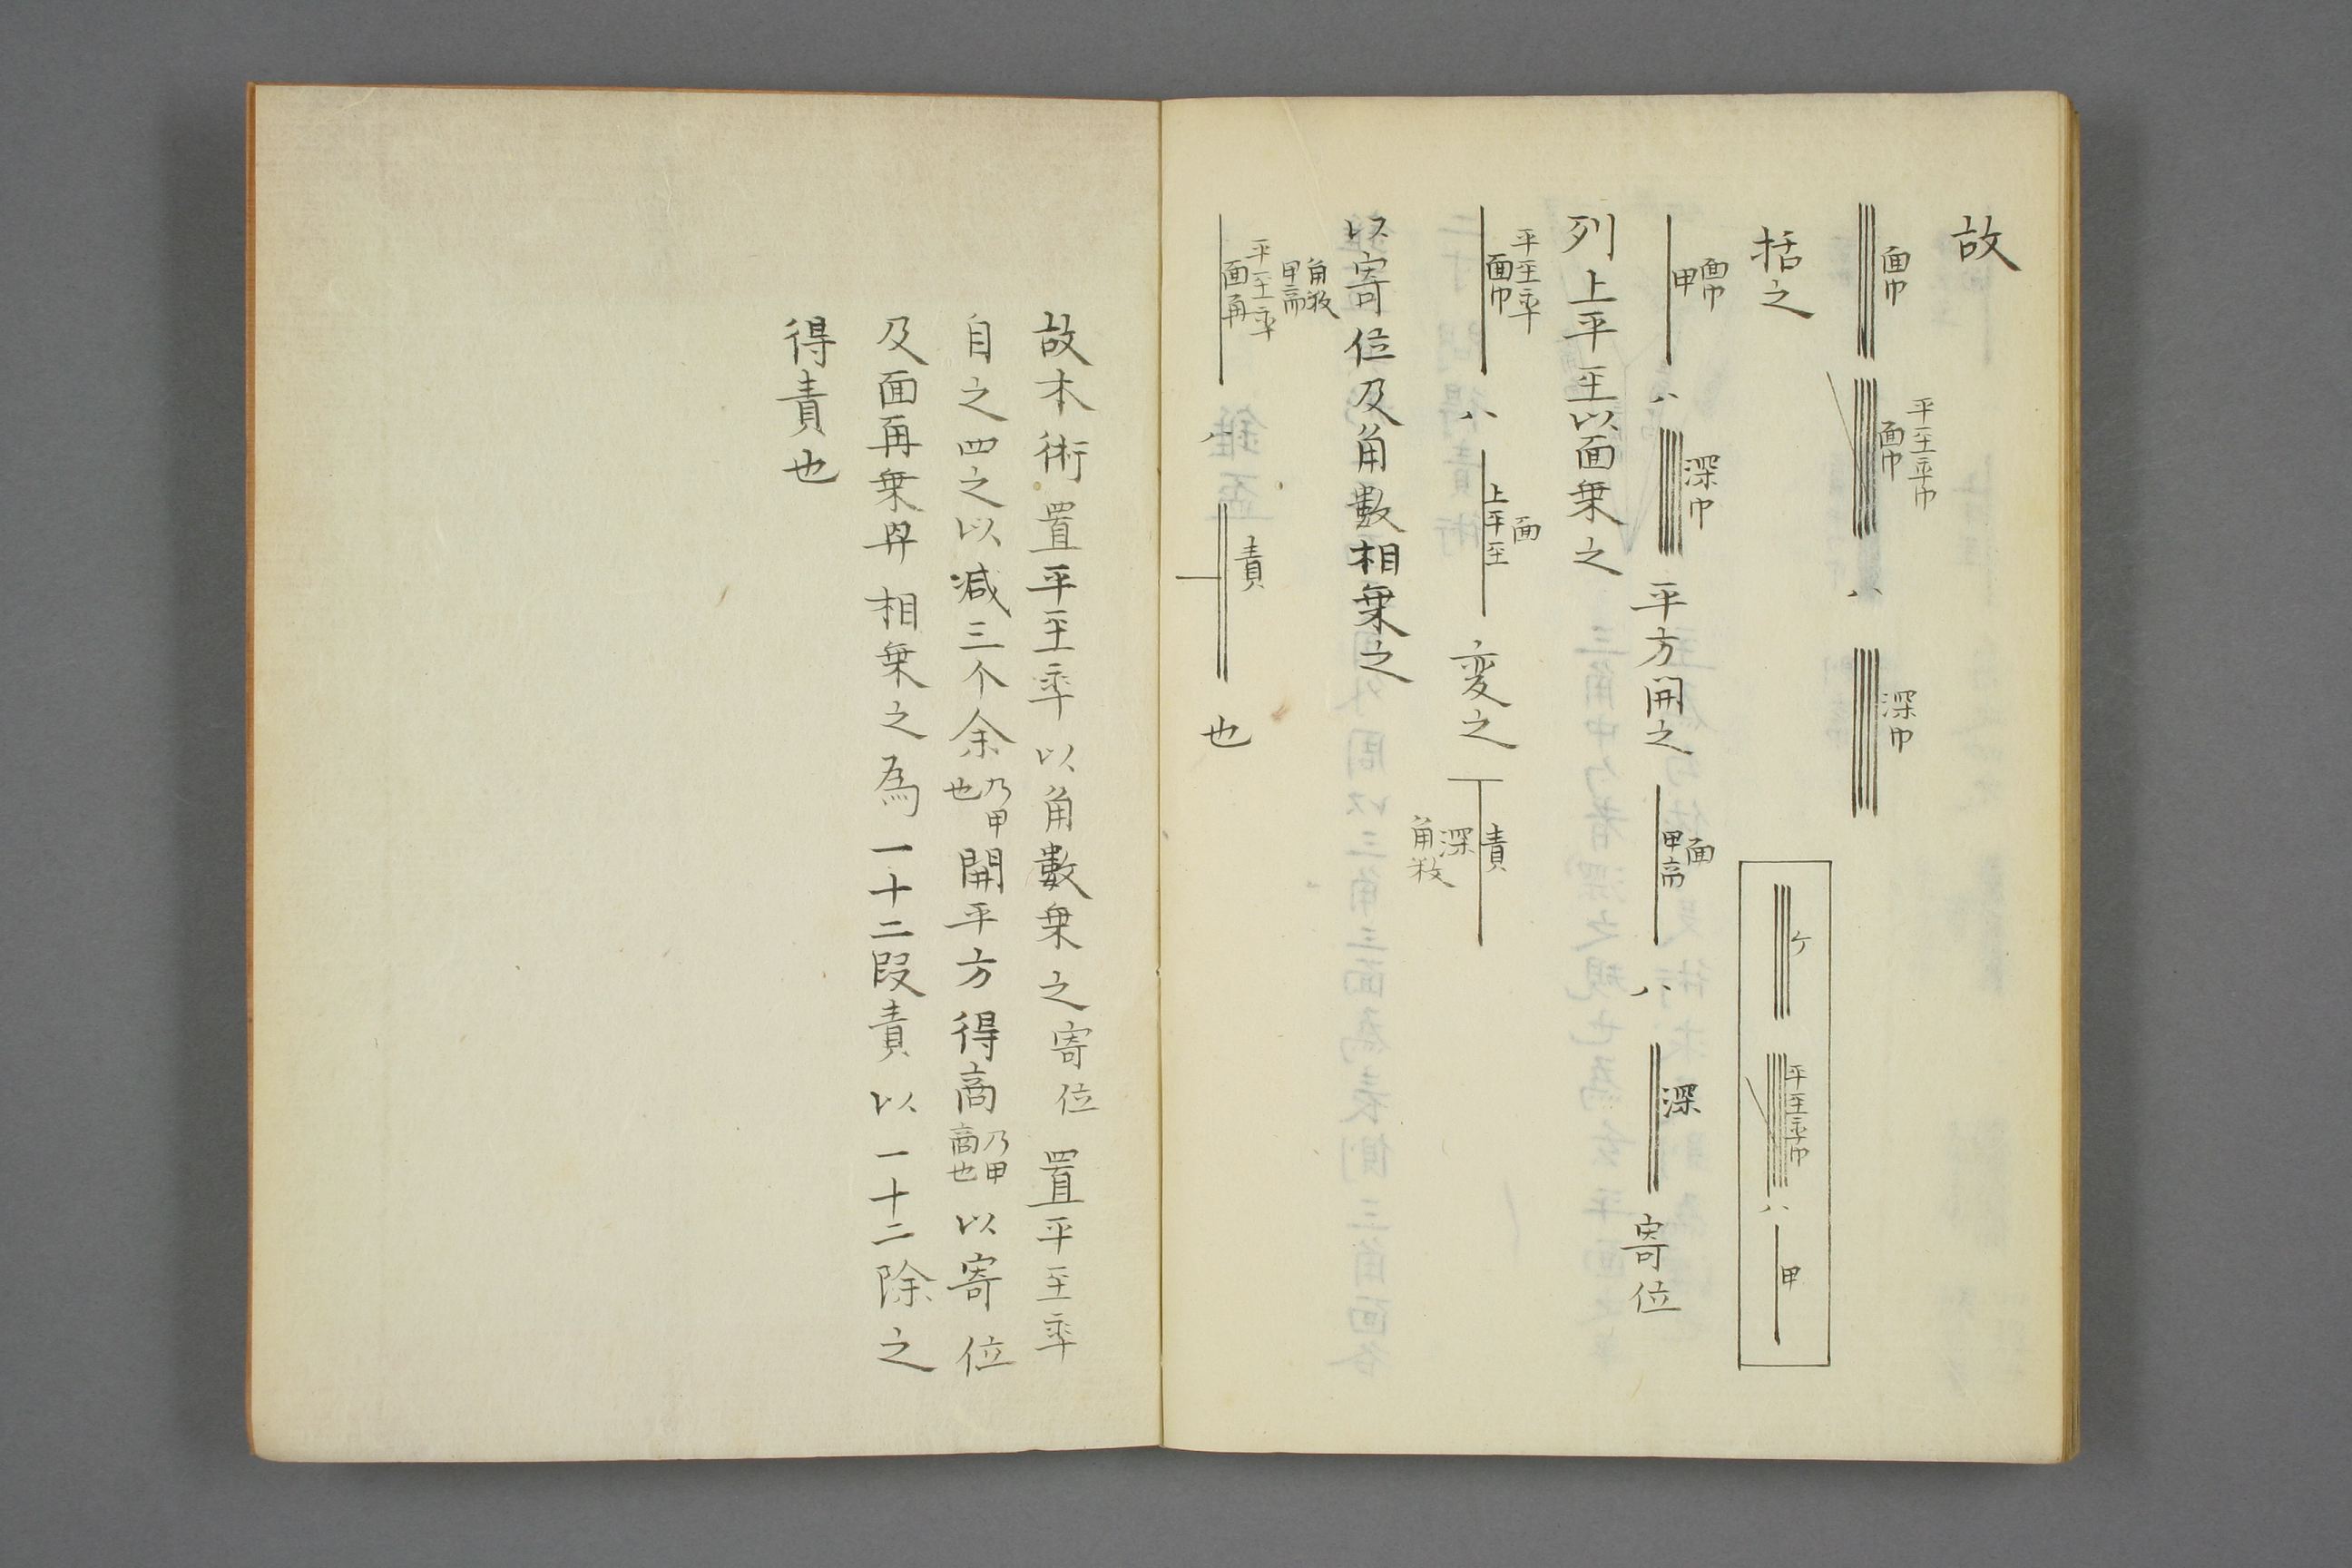 故
面巾 平至率巾 面巾 ハ 深巾
括之 ケ 平至率巾 ハ 甲
面巾 甲 ハ 深巾 平方開之 面 甲商 ハ 深 寄位
列上平至以面乗之
平至率 面巾 ハ 面 上平至 変之 責 深 角数
以寄位及角數相乗之
角数 甲商 平至率 面再 ハ 責 也
故本術置平至率以角數乗之寄位置平至率
自之四之以减三个余乃甲也開平方得商乃甲商也以寄位
及面再乗冪相乗之為一十二段責以一十二除之
得責也